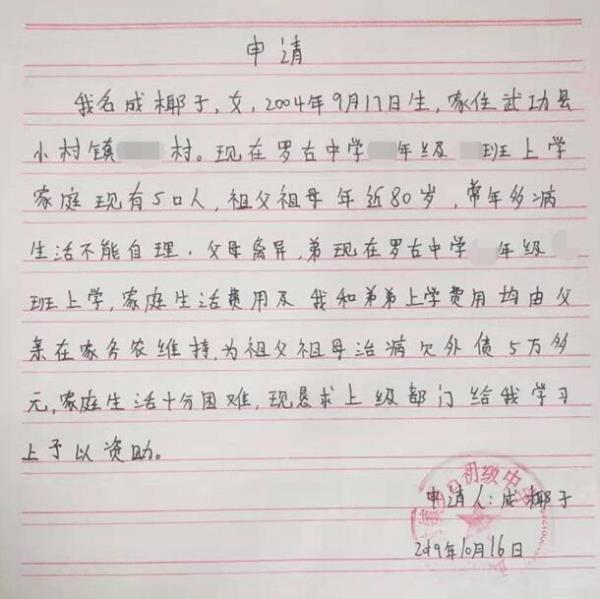 申请
我名成椰子,女,2004年9月17日生,家住武功县
小村镇 村。现在罗古中学 年级 班上学
家庭现有5口人,祖父祖母年近80岁,常年多病
生活不能自理.父母离异,弟现在罗古中学 年级
班上学,家庭生活费用及我和弟弟上学费用均由父
亲在家务农维持,为祖父祖母治病欠外债5万多
元,家庭生活十分困难,现恳求上级部门给我学习
上予以资助。
初级中学
申请人:成椰子
2019年10月16日